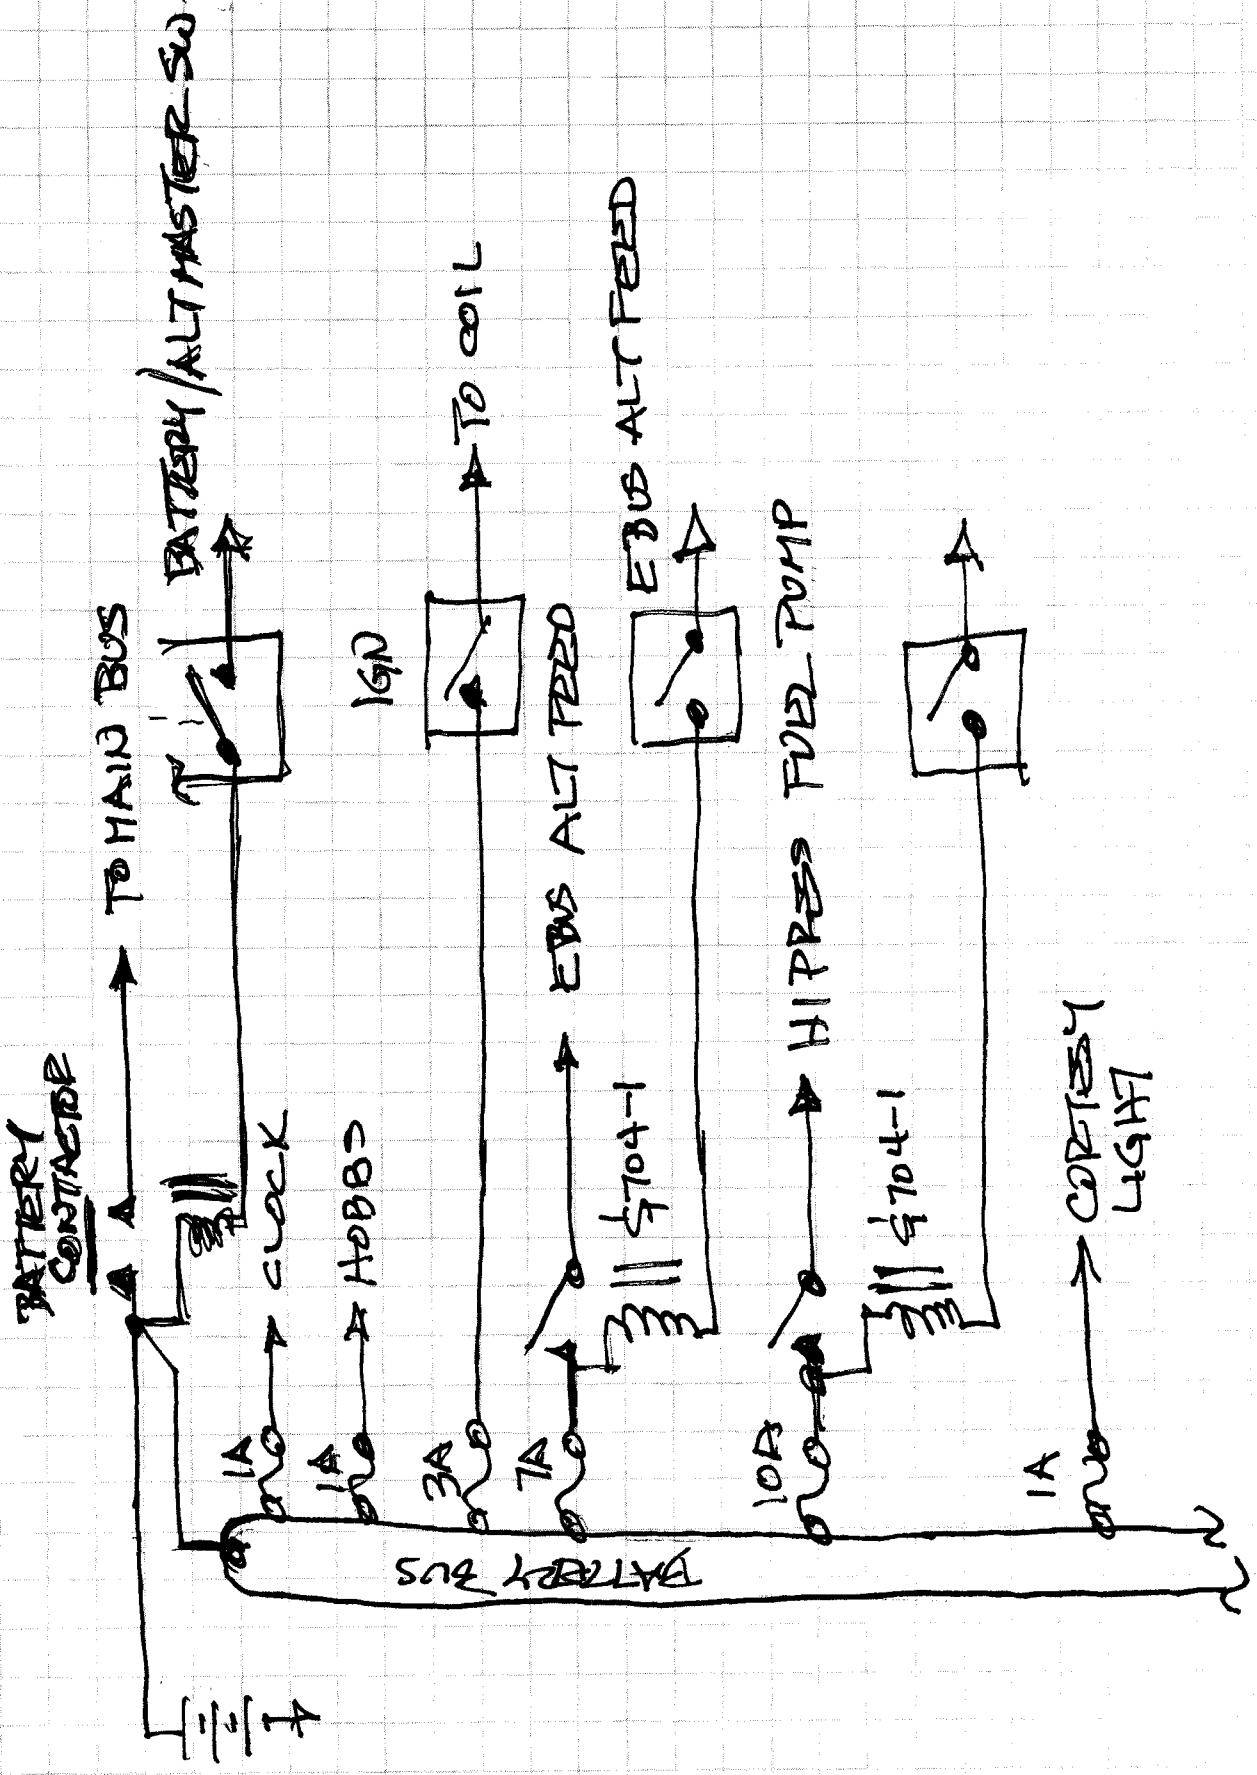 BATTERY
CONTACTOR
TO MAIN BUS
BATTERY/ALT MASTER SW
1A
CLOCK
1A
HOBBS
IGN
3A
TO COIL
7A
EBUS ALT FEED
S704-1
E BUS ALT FEED
10A
HI PRESS FUEL PUMP
S704-1
1A
CORTESY
LIGHT
BATTERY BUS